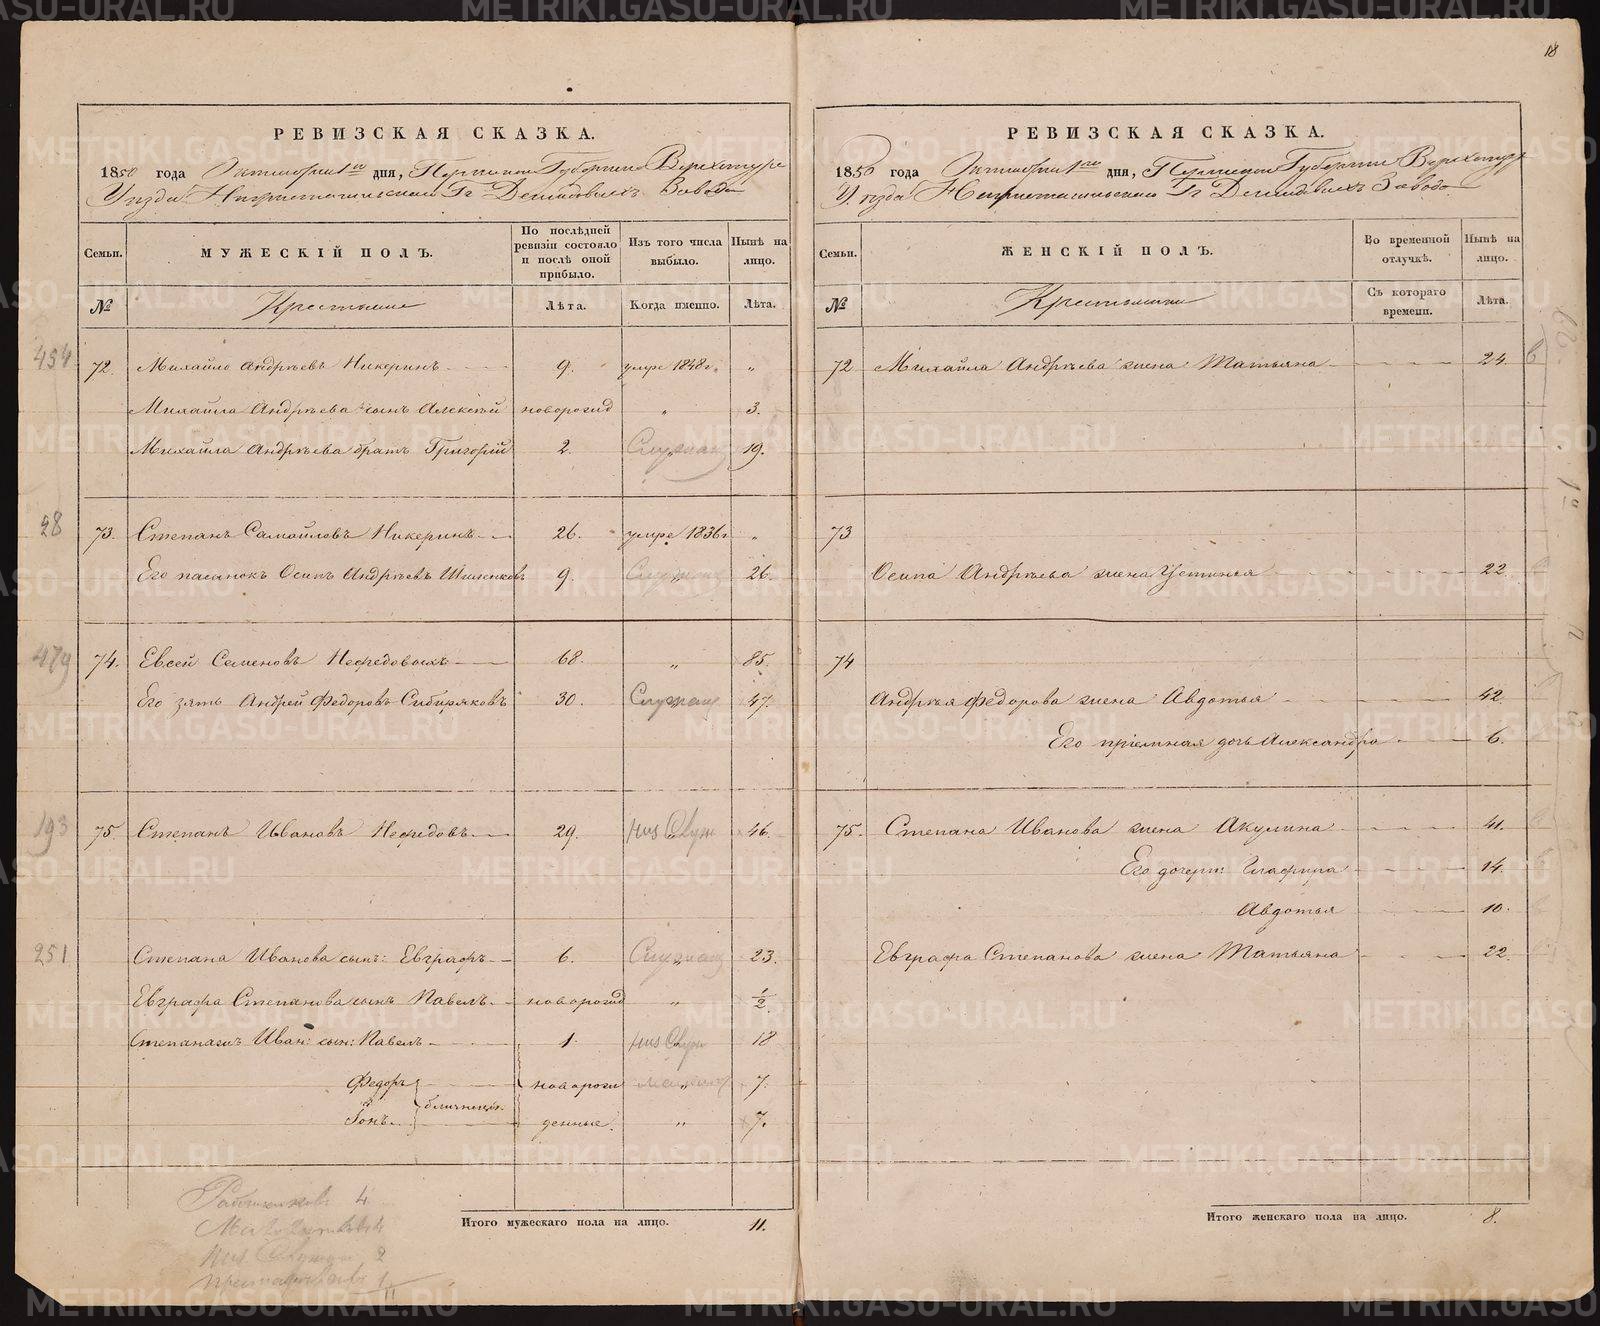 18
РЕВИЗСКАЯ СКАЗКА.
1850 года Октября 1го дня, Пермской Губерніи Верхотурс
Уѣзда Нижнетагильскаго Гг Демидовыхъ Завода
Семьи.
МУЖЕСКІЙ ПОЛЪ.
По послѣдней ревизіи состояло и послѣ оной прибыло.
Изъ того числа выбыло.
Нынѣ на лицо.
№
Крестьяне
Лѣта.
Когда именно.
Лѣта.
454 72. Михайло Андрѣевъ Никеринъ 9. умре 1848 г. „
Михайла Андрѣева сынъ Алексѣй новорожд „ 3.
Михайла Андрѣева братъ Григорій 2. 19.
28 73. Степанъ Самойловъ Никеринъ 26. умре 1836 г „
Его пасынокъ Осипъ Андрѣевъ 9. 26.
479 74. Евсей Семеновъ Нефедовыхъ 68. „ 85.
Его зять Андрей Федоровъ Сибиряковъ 30. Служащ 47.
193 75. Степанъ Ивановъ Нефедовъ 29. 46.
251 Степана Иванова сынъ: Евграфъ 6. Служащ 23.
Евграфа Степанова сынъ Павелъ новорожд „ 1/2
Иван: сын: Павелъ 1. 18
Федоръ новорож 7.
близнецы.
Іонъ денные. „ 7.
Итого мужескаго пола на лицо. 11.
РЕВИЗСКАЯ СКАЗКА.
1850 года Октября 1го дня, Пермской Губерніи Верхотурс
Уѣзда Нижнетагильскаго Гг Демидовыхъ Завода
Семьи.
ЖЕНСКІЙ ПОЛЪ.
Во временной отлучкѣ.
Нынѣ на лицо.
№
Крестьянки
Съ котораго времени.
Лѣта.
72 Михайла Андрѣева жена Татьяна 24.
73
Осипа Андрѣева жена Устинья 22.
74
Андрѣя Федорова жена Авдотья 42.
Его пріемная дочь Александра 6.
75. Степана Иванова жена Акулина 41.
Его дочери: Глафира 14.
Авдотья 10.
Евграфа Степанова жена Татьяна 22.
Итого женскаго пола на лицо. 8.
METRIKI.GASO-URAL.RU